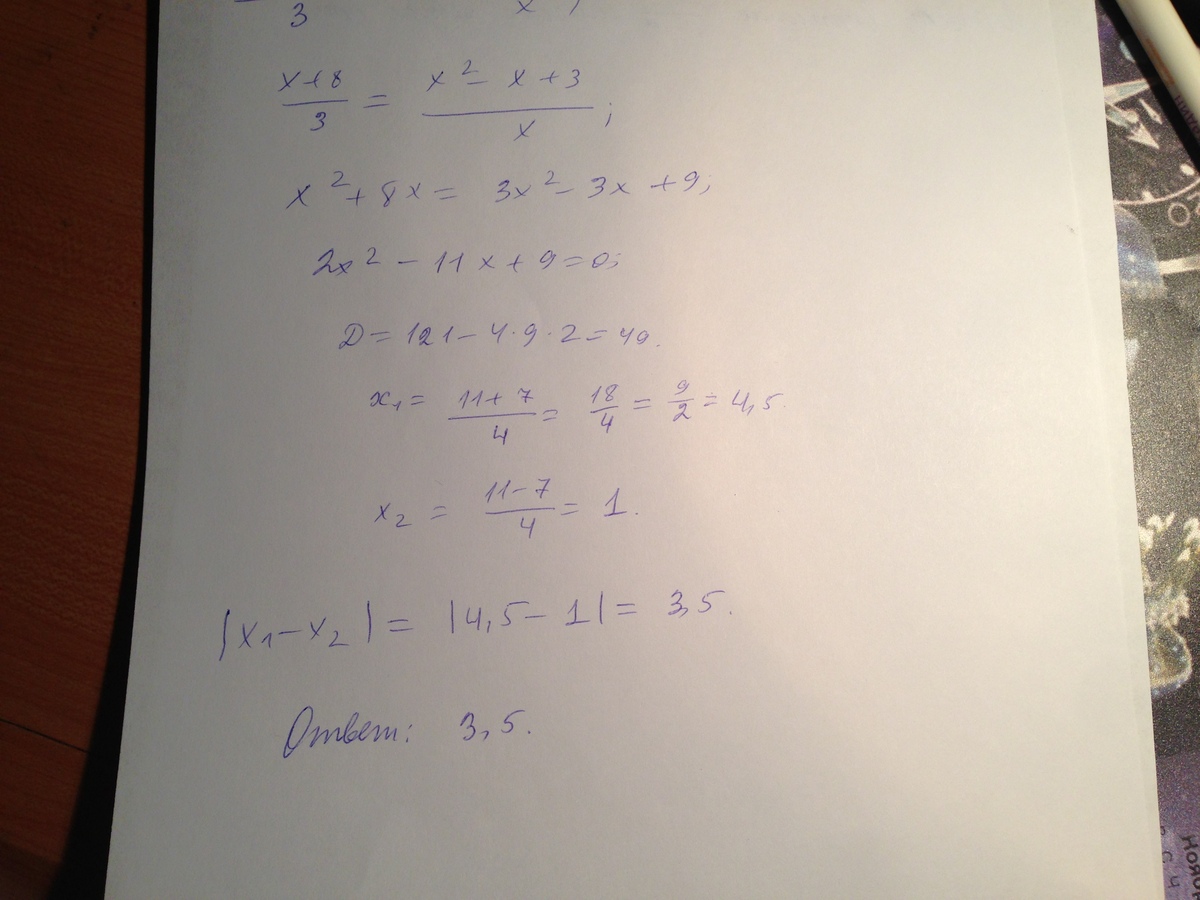 3 x ;
x+8/3 = x² - x + 3/x ;
x² + 8x = 3x² - 3x + 9;
2x² - 11x + 9 = 0;
D = 121 - 4·9·2 = 49.
x₁ = 11+7/4 = 18/4 = 9/2 = 4,5.
x₂ = 11-7/4 = 1.
|x₁ - x₂| = |4,5 - 1| = 3,5.
Ответ: 3,5.